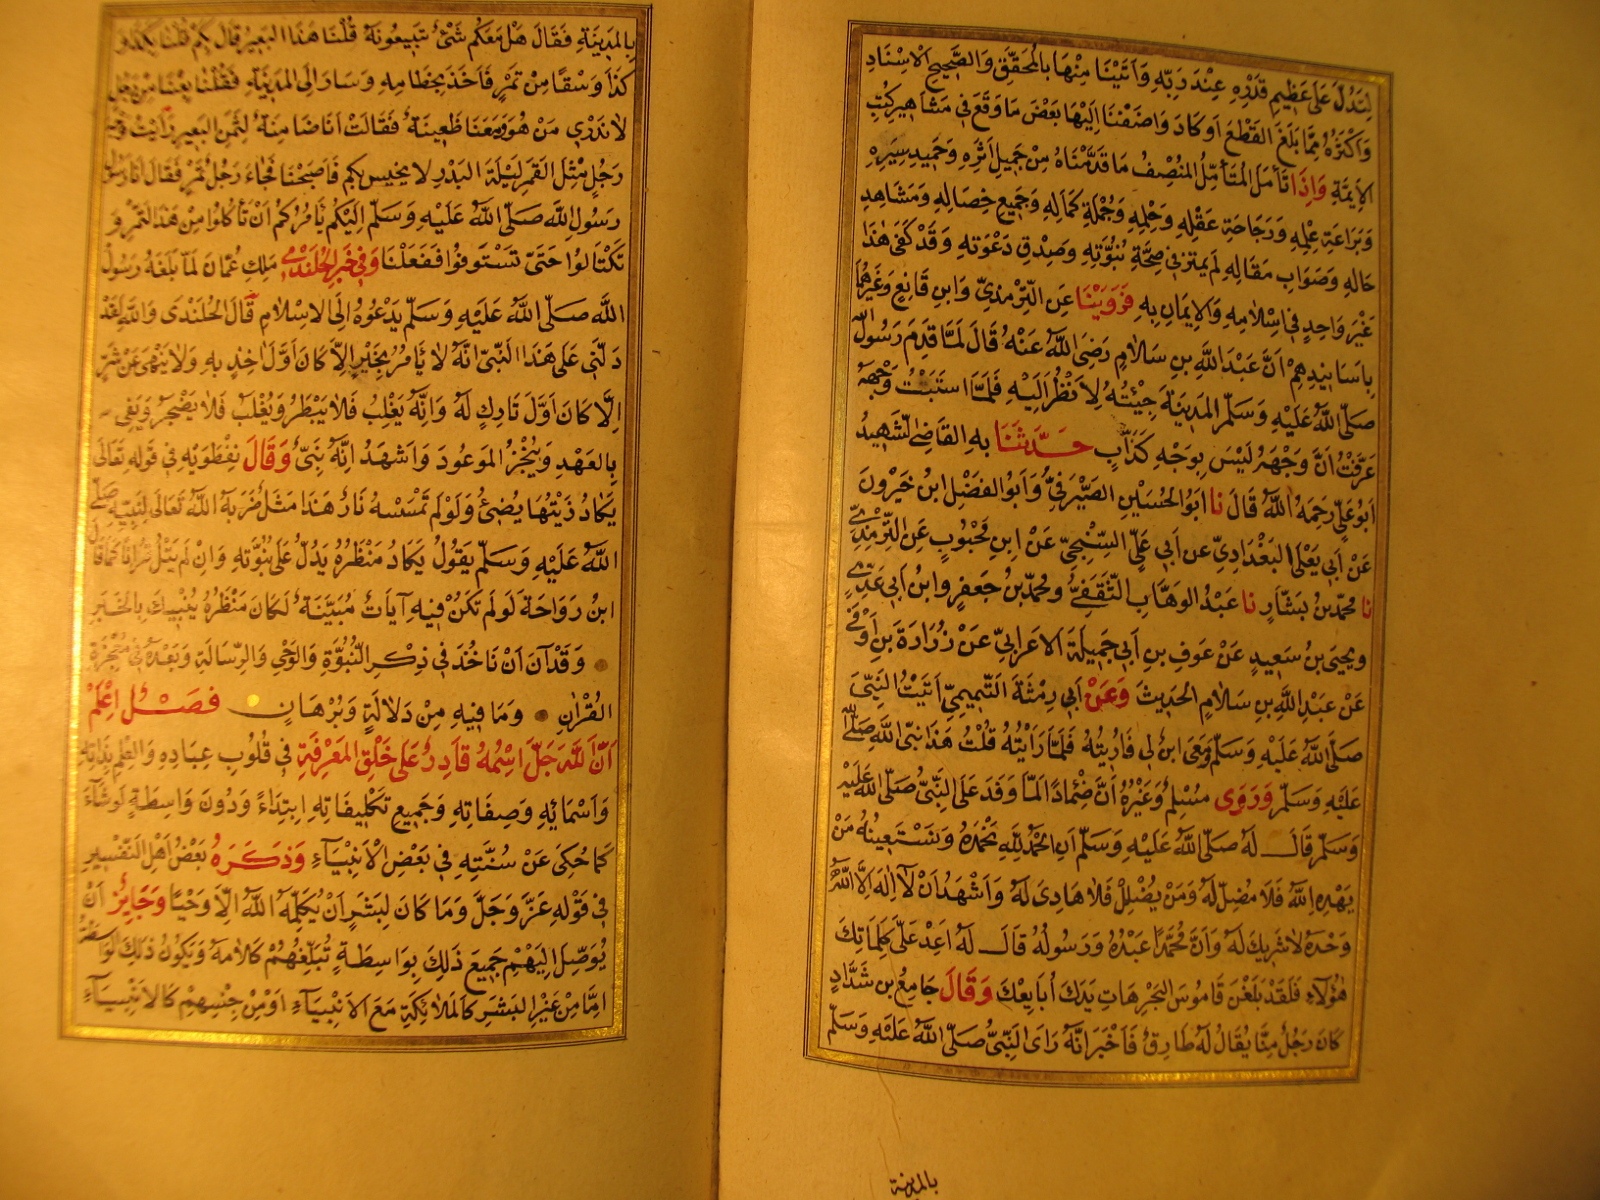 لِتَدُلَّ عَلَى عَظِيمِ قَدْرِهِ عِنْدَ رَبِّهِ وَاَتَيْنَا مِنْهَا بِالْمُحَقَّقِ وَالصَّحِيحِ الْاِسْنَادِ
وَاَكْثَرُهُ مِمَّا بَلَغَ الْقَطْعَ اَوْ كَادَ وَاَضَفْنَا اِلَيْهَا بَعْضَ مَا وَقَعَ فِي مَشَاهِيرِ كُتُبِ
الْاَئِمَّةِ وَاِذَا تَأَمَّلَ الْمُتَأَمِّلُ الْمُنْصِفُ مَا قَدَّمْنَاهُ مِنْ جَمِيلِ اَثَرِهِ وَحَمِيدِ سِيَرِهِ
وَبَرَاعَةِ عِلْمِهِ وَرَجَاحَةِ عَقْلِهِ وَحِلْمِهِ وَجُمْلَةِ كَمَالِهِ وَجَمِيعِ خِصَالِهِ وَمَشَاهِدِ
حَالِهِ وَصَوَابِ مَقَالِهِ لَمْ يَمْتَرِ فِي صِحَّةِ نُبُوَّتِهِ وَصِدْقِ دَعْوَتِهِ وَقَدْ كَفَى هٰذَا
غَيْرَ وَاحِدٍ فِي اِسْلَامِهِ وَالْاِيمَانِ بِهِ فَرَوَيْنَا عَنِ التِّرْمِذِيِّ وَابْنِ قَانِعٍ وَغَيْرِهُمَا
بِاَسَانِيدِهِمْ اَنَّ عَبْدَ اللّٰهِ بْنَ سَلَامٍ رَضِيَ اللّٰهُ عَنْهُ قَالَ لَمَّا قَدِمَ رَسُولُ اللّٰهِ
صَلَّى اللّٰهُ عَلَيْهِ وَسَلَّمَ الْمَدِينَةَ جِئْتُهُ لِاَنْظُرَ اِلَيْهِ فَلَمَّا اسْتَبَنْتُ وَجْهَهُ
عَرَفْتُ اَنَّ وَجْهَهُ لَيْسَ بِوَجْهِ كَذَّابٍ حَدَّثَنَا بِهِ الْقَاضِي الشَّهِيدُ
اَبُو عَلِيٍّ رَحِمَهُ اللّٰهُ قَالَ نا اَبُو الْحُسَيْنِ الصَّيْرَفِيُّ وَاَبُو الْفَضْلِ ابْنُ خَيْرُونَ
عَنْ اَبِي يَعْلَى الْبَغْدَادِيِّ عَنْ اَبِي عَلِيٍّ السِّنْجِيِّ عَنْ ابْنِ مَحْبُوبٍ عَنِ التِّرْمِذِيِّ
نا مُحَمَّدُ بْنُ بَشَّارٍ نا عَبْدُ الْوَهَّابِ الثَّقَفِيُّ وَمُحَمَّدُ بْنُ جَعْفَرٍ وَابْنُ اَبِي عَدِيٍّ
وَيَحْيَى بْنُ سَعِيدٍ عَنْ عَوْفِ بْنِ اَبِي جَمِيلَةَ الْاَعْرَابِيِّ عَنْ زُرَارَةَ بْنِ اَوْفَى
عَنْ عَبْدِ اللّٰهِ بْنِ سَلَامٍ الْحَدِيثَ وَعَنْ اَبِي رِمْثَةَ التَّمِيمِيِّ اَتَيْتُ النَّبِيَّ
صَلَّى اللّٰهُ عَلَيْهِ وَسَلَّمَ وَمَعِي ابْنٌ لِي فَاُرِيتُهُ فَلَمَّا رَاَيْتُهُ قُلْتُ هَذَا نَبِيُّ اللّٰهِ صَلَّى اللّٰهُ
عَلَيْهِ وَسَلَّمَ وَرَوَى مُسْلِمٌ وَغَيْرُهُ اَنَّ ضِمَادًا لَمَّا وَفَدَ عَلَى النَّبِيِّ صَلَّى اللّٰهُ عَلَيْهِ
وَسَلَّمَ قَالَ لَهُ صَلَّى اللّٰهُ عَلَيْهِ وَسَلَّمَ اَنِ الْحَمْدُ لِلّٰهِ نَحْمَدُهُ وَنَسْتَعِينُهُ مَنْ
يَهْدِهِ اللّٰهُ فَلَا مُضِلَّ لَهُ وَمَنْ يُضْلِلْ فَلَا هَادِيَ لَهُ وَاَشْهَدُ اَنْ لَا اِلٰهَ اِلَّا اللّٰهُ
وَحْدَهُ لَا شَرِيكَ لَهُ وَاَنَّ مُحَمَّدًا عَبْدُهُ وَرَسُولُهُ قَالَ لَهُ اَعِدْ عَلَيَّ كَلِمَاتِكَ
هٰؤُلَاءِ فَلَقَدْ بَلَغْنَ قَامُوسَ الْبَحْرِ هَاتِ يَدَكَ اُبَايِعْكَ وَقَالَ جَامِعُ بْنُ شَدَّادٍ
كَانَ رَجُلٌ مِنَّا يُقَالُ لَهُ طَارِقٌ فَاَخْبَرَ اَنَّهُ رَاَى النَّبِيَّ صَلَّى اللّٰهُ عَلَيْهِ وَسَلَّمَ
بالمدينة
بِالْمَدِينَةِ فَقَالَ هَلْ مَعَكُمْ شَيْءٌ تَبِيعُونَهُ قُلْنَا هَذَا الْبَعِيرُ قَالَ بِكَمْ قُلْنَا بِكَذَا وَ
كَذَا وَسْقًا مِنْ تَمْرٍ فَاَخَذَ بِخِطَامِهِ وَسَارَ اِلَى الْمَدِينَةِ فَقُلْنَا بِعْنَا مِنْ رَجُلٍ
لَا نَدْرِي مَنْ هُوَ وَمَعَنَا ظَعِينَةٌ فَقَالَتْ اَنَا ضَامِنَةٌ لِثَمَنِ الْبَعِيرِ رَاَيْتُ وَجْهَ
رَجُلٍ مِثْلَ الْقَمَرِ لَيْلَةَ الْبَدْرِ لَا يَخِيسُ بِكُمْ فَاَصْبَحْنَا فَجَاءَ رَجُلٌ بِتَمْرٍ فَقَالَ اَنَا رَسُولُ
رَسُولِ اللّٰهِ صَلَّى اللّٰهُ عَلَيْهِ وَسَلَّمَ اِلَيْكُمْ يَأْمُرُكُمْ اَنْ تَأْكُلُوا مِنْ هَذَا التَّمْرِ وَ
تَكْتَالُوا حَتَّى تَسْتَوْفُوا فَفَعَلْنَا وَفِي خَبَرِ الْجُلَنْدَى مَلِكِ عُمَانَ لَمَّا بَلَغَهُ رَسُولُ
اللّٰهِ صَلَّى اللّٰهُ عَلَيْهِ وَسَلَّمَ يَدْعُوهُ اِلَى الْاِسْلَامِ قَالَ الْجُلَنْدَى وَاللّٰهِ لَقَدْ
دَلَّنِي عَلَى هَذَا النَّبِيِّ اَنَّهُ لَا يَأْمُرُ بِخَيْرٍ اِلَّا كَانَ اَوَّلَ اٰخِذٍ بِهِ وَلَا يَنْهَى عَنْ شَرٍّ
اِلَّا كَانَ اَوَّلَ تَارِكٍ لَهُ وَاِنَّهُ يَغْلِبُ فَلَا يَبْطَرُ وَيُغْلَبُ فَلَا يَضْجَرُ وَيَفِي
بِالْعَهْدِ وَيُنْجِزُ الْمَوْعُودَ وَاَشْهَدُ اَنَّهُ نَبِيٌّ وَقَالَ نِفْطَوَيْهِ فِي قَوْلِهِ تَعَالَى
يَكَادُ زَيْتُهَا يُضِيءُ وَلَوْ لَمْ تَمْسَسْهُ نَارٌ هَذَا مَثَلٌ ضَرَبَهُ اللّٰهُ تَعَالَى لِنَبِيِّهِ صَلَّى
اللّٰهُ عَلَيْهِ وَسَلَّمَ يَقُولُ يَكَادُ مَنْظَرُهُ يَدُلُّ عَلَى نُبُوَّتِهِ وَاِنْ لَمْ يَتْلُ قُرْاٰنًا كَمَا قَالَ
ابْنُ رَوَاحَةَ لَوْ لَمْ تَكُنْ فِيهِ آيَاتٌ مُبَيِّنَةٌ لَكَانَ مَنْظَرُهُ يُنْبِيكَ بِالْخَبَرِ
وَقَدْ آنَ اَنْ نَأْخُذَ فِي ذِكْرِ النُّبُوَّةِ وَالْوَحْيِ وَالرِّسَالَةِ وَبَعْدَهُ فِي مُعْجِزَةِ
الْقُرْاٰنِ وَمَا فِيهِ مِنْ دَلَالَةٍ وَبُرْهَانٍ فَصْلٌ اِعْلَمْ
اَنَّ اللّٰهَ جَلَّ اسْمُهُ قَادِرٌ عَلَى خَلْقِ الْمَعْرِفَةِ فِي قُلُوبِ عِبَادِهِ وَالْعِلْمِ بِذَاتِهِ
وَاَسْمَائِهِ وَصِفَاتِهِ وَجَمِيعِ تَكْلِيفَاتِهِ اِبْتِدَاءً وَدُونَ وَاسِطَةٍ لَوْ شَاءَ
كَمَا حُكِيَ عَنْ سُنَّتِهِ فِي بَعْضِ الْاَنْبِيَاءِ وَذَكَرَهُ بَعْضُ اَهْلِ التَّفْسِيرِ
فِي قَوْلِهِ عَزَّ وَجَلَّ وَمَا كَانَ لِبَشَرٍ اَنْ يُكَلِّمَهُ اللّٰهُ اِلَّا وَحْيًا وَجَائِزٌ اَنْ
يُوَصِّلَ اِلَيْهِمْ جَمِيعَ ذٰلِكَ بِوَاسِطَةٍ تُبَلِّغُهُمْ كَلَامَهُ وَتَكُونُ تِلْكَ الْوَاسِطَةُ
اِمَّا مِنْ غَيْرِ الْبَشَرِ كَالْمَلَائِكَةِ مَعَ الْاَنْبِيَاءِ اَوْ مِنْ جِنْسِهِمْ كَالْاَنْبِيَاءِ